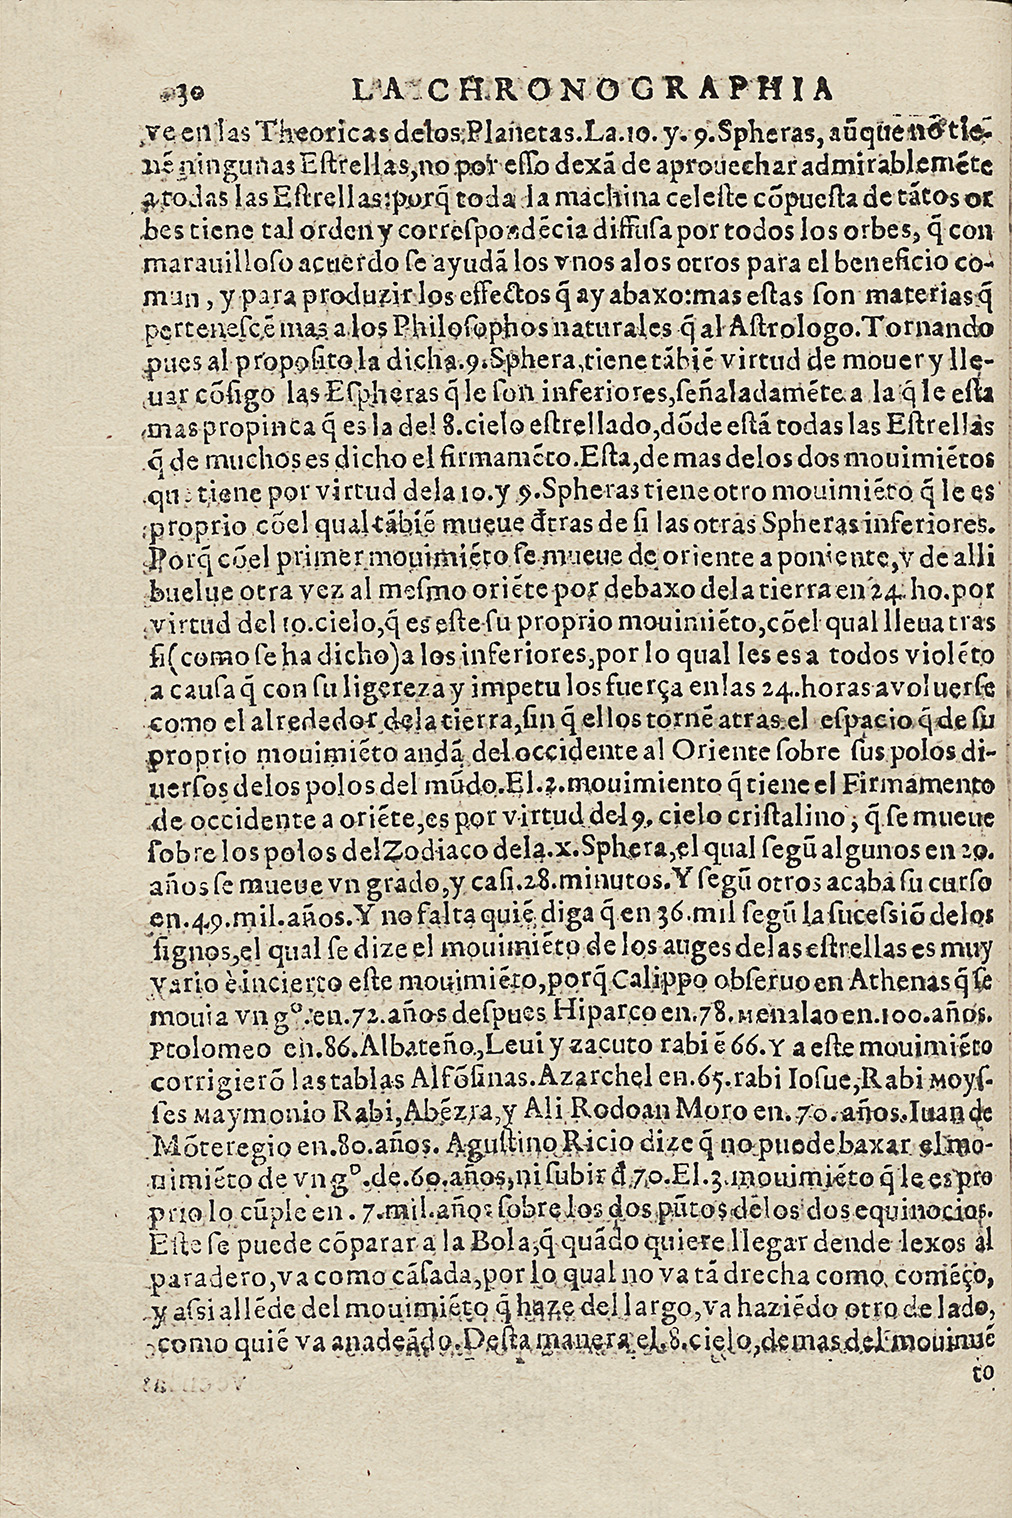 30 LA CHRONOGRAPHIA
ve en las Theoricas delos Planetas. La. 10. y. 9. Spheras, aũque nõ tiẽ-
nẽ ningunas Estrellas, no por esso dexã de aprouechar admirablemẽte
a todas las Estrellas: porq̃ toda la machina celeste cõpuesta de tãtos or
bes tiene tal orden y correspondẽcia diffusa por todos los orbes, q̃ con
marauilloso acuerdo se ayudã los vnos alos otros para el beneficio co-
mun, y para produzir los effectos q̃ ay abaxo: mas estas son materias q̃
pertenescẽ mas a los Philosophos naturales q̃ al Astrologo. Tornando
pues al proposito la dicha. 9. Sphera, tiene tãbiẽ virtud de mouer y lle-
uar cõsigo las Espheras q̃ le son inferiores, señaladamẽte a la q̃ le esta
mas propinca q̃ es la del 8. cielo estrellado, dõde estã todas las Estrellas
q̃ de muchos es dicho el firmamẽto. Esta, de mas delos dos mouimiẽtos
que tiene por virtud dela 10. y 9. Spheras tiene otro mouimiẽto q̃ le es
proprio cõel qual tãbiẽ mueue đtras de si las otras Spheras inferiores.
Porq̃ cõel primer mouimiẽto se mueue de oriente a poniente, y de alli
buelue otra vez al mesmo oriẽte por debaxo dela tierra en 24. ho. por
virtud del 10. cielo, q̃ es este su proprio mouimiẽto, cõel qual lleua tras
si (como se ha dicho) a los inferiores, por lo qual les es a todos violẽto
a causa q̃ con su ligereza y impetu los fuerça en las 24. horas a voluerse
como el alrededor dela tierra, sin q̃ ellos tornẽ atras el espacio q̃ de su
proprio mouimiẽto andã del occidente al Oriente sobre sus polos di-
uersos delos polos del mũdo. El. 2. mouimiento q̃ tiene el Firmamento
de occidente a oriẽte, es por virtud del 9. cielo cristalino, q̃ se mueue
sobre los polos del Zodiaco dela. x. Sphera, el qual segũ algunos en 20.
años se mueue vn grado, y casi. 28. minutos. Y segũ otros acaba su curso
en. 49. mil. años. Y no falta quiẽ diga q̃ en 36. mil segũ la sucessiõ delos
signos, el qual se dize el mouimiẽto de los auges delas estrellas es muy
vario è incierto este mouimiẽto, porq̃ Calippo obseruo en Athenas q̃ se
mouia vn gº. en. 72. años despues Hiparco en. 78. Menalao en. 100. años.
Ptolomeo en. 86. Albateño, Leui y zacuto rabi ẽ 66. Y a este mouimiẽto
corrigierõ las tablas Alfõsinas. Azarchel en. 65. rabi Iosue, Rabi Moys-
ses Maymonio Rabi, Abẽzra, y Ali Rodoan Moro en. 70. años. Iuan de
Mõteregio en. 80. años. Agustino Ricio dize q̃ no puede baxar el mo-
uimiẽto de vn gº. de. 60. años, ni subir đ 70. El. 3. mouimiẽto q̃ le es pro
prio lo cũple en. 7. mil. años sobre los dos pũtos delos dos equinocios.
Este se puede cõparar a la Bola, q̃ quãdo quiere llegar dende lexos al
paradero, va como cãsada, por lo qual no va tã drecha como comẽço,
y assi allẽde del mouimiẽto q̃ haze del largo, va haziẽdo otro de lado,
como quiẽ va anadeãdo. Desta manera el. 8. cielo, demas del mouimiẽ
to